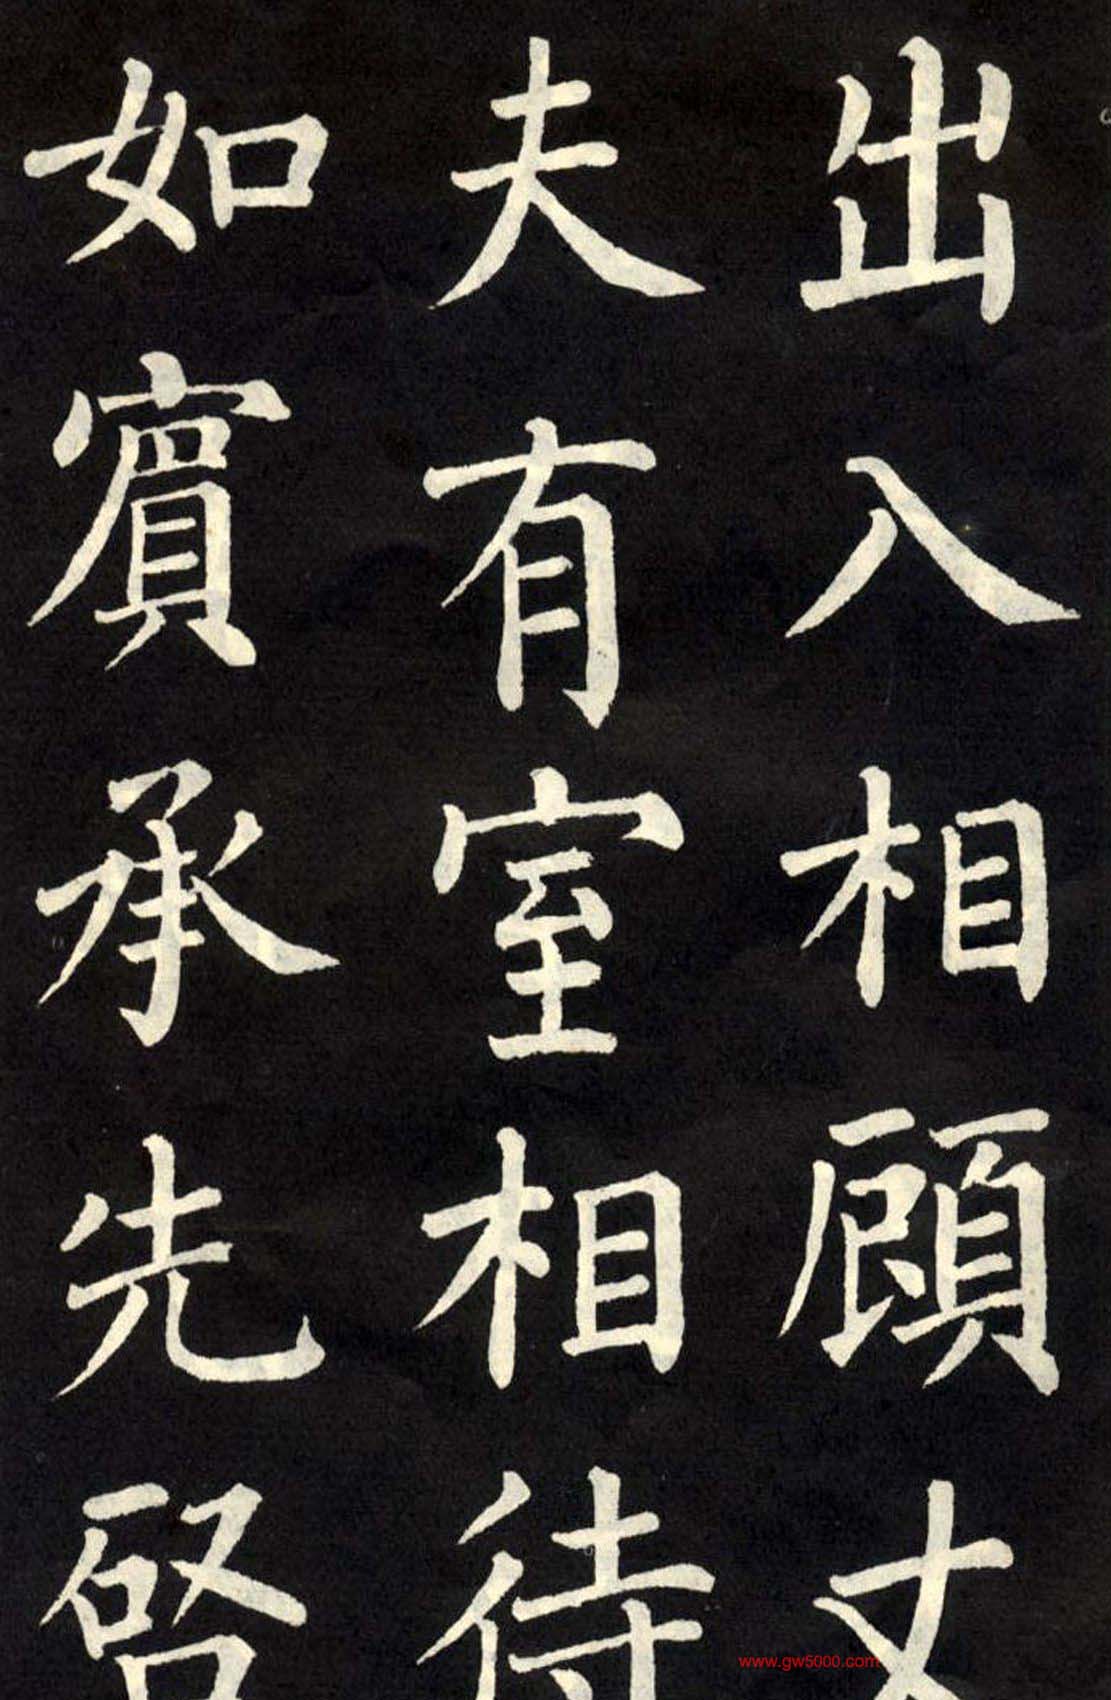 出入相顧丈
夫有室相待
如賓承先啓
www.gw5000.com